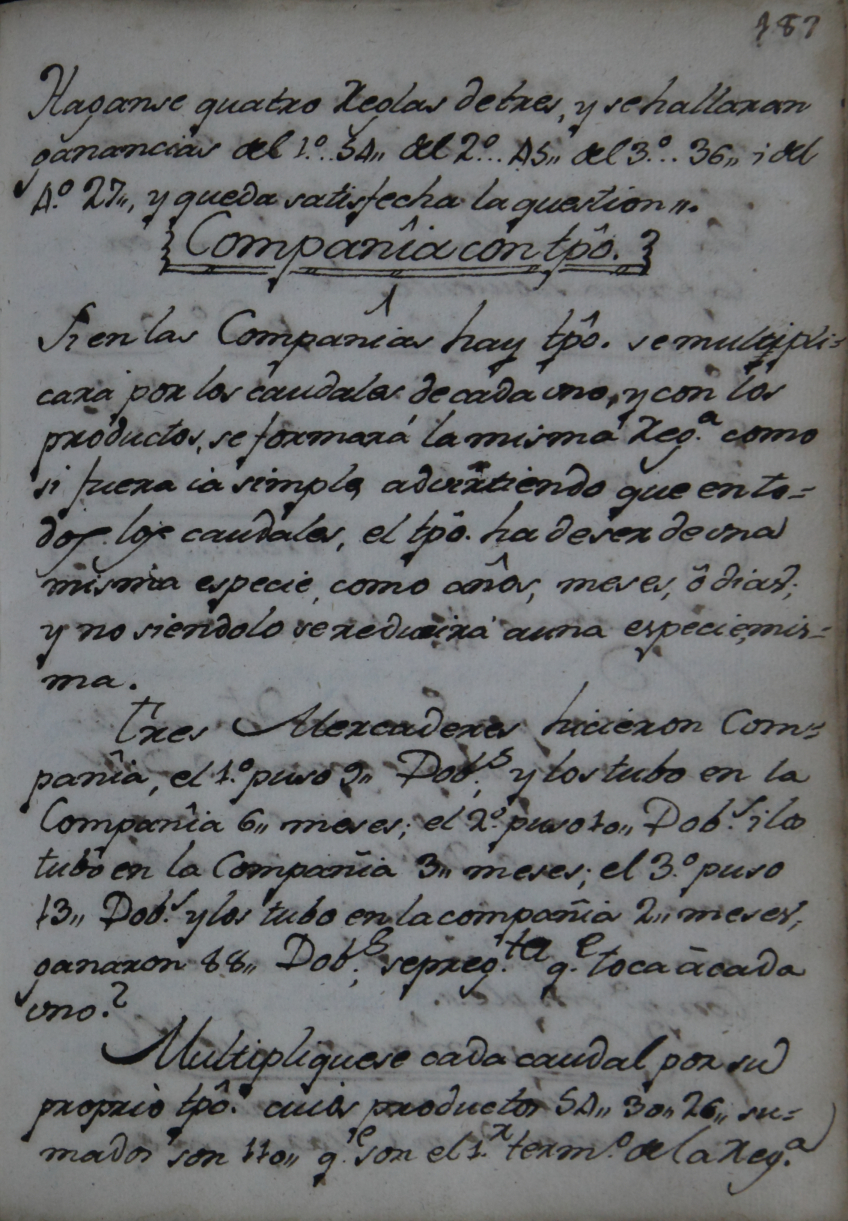 187
Haganse quatro Reglas de tres, y se hallaran
ganancias del 1.º 54,, del 2.º 45,, del 3.º 36,, i del
4.º 27,, y queda satisfecha la question,,.
Compañia con tpô.
Si en las Compañias hay tpô. se multipli=
cará por los caudales de cada uno, y con los
productos, se formará la misma Reg.ª como
si fuera ia simple, advirtiendo que en to=
dos los caudales, el tpô. ha de ser de una
misma especie, como años, meses, ô dias;
y no siendolo se reducirá a una especie mis=
ma.
Tres Mercaderes hicieron Com=
pañia, el 1.º puso 9,, Dob.s, y los tubo en la
Compañia 6,, meses; el 2.º puso 10,, Dob.s i los
tubo en la Compañia 3,, meses; el 3.º puso
13,, Dob.s y los tubo en la compañia 2,, meses,
ganaron 88,, Dob.s, se preg.ta q.e toca â cada
uno.?
Multipliquese cada caudal por su
proprio tpô. cuios productos 54,, 30,, 26,, su=
mados son 110,, q.e son el 1.r term.º de la Reg.ª